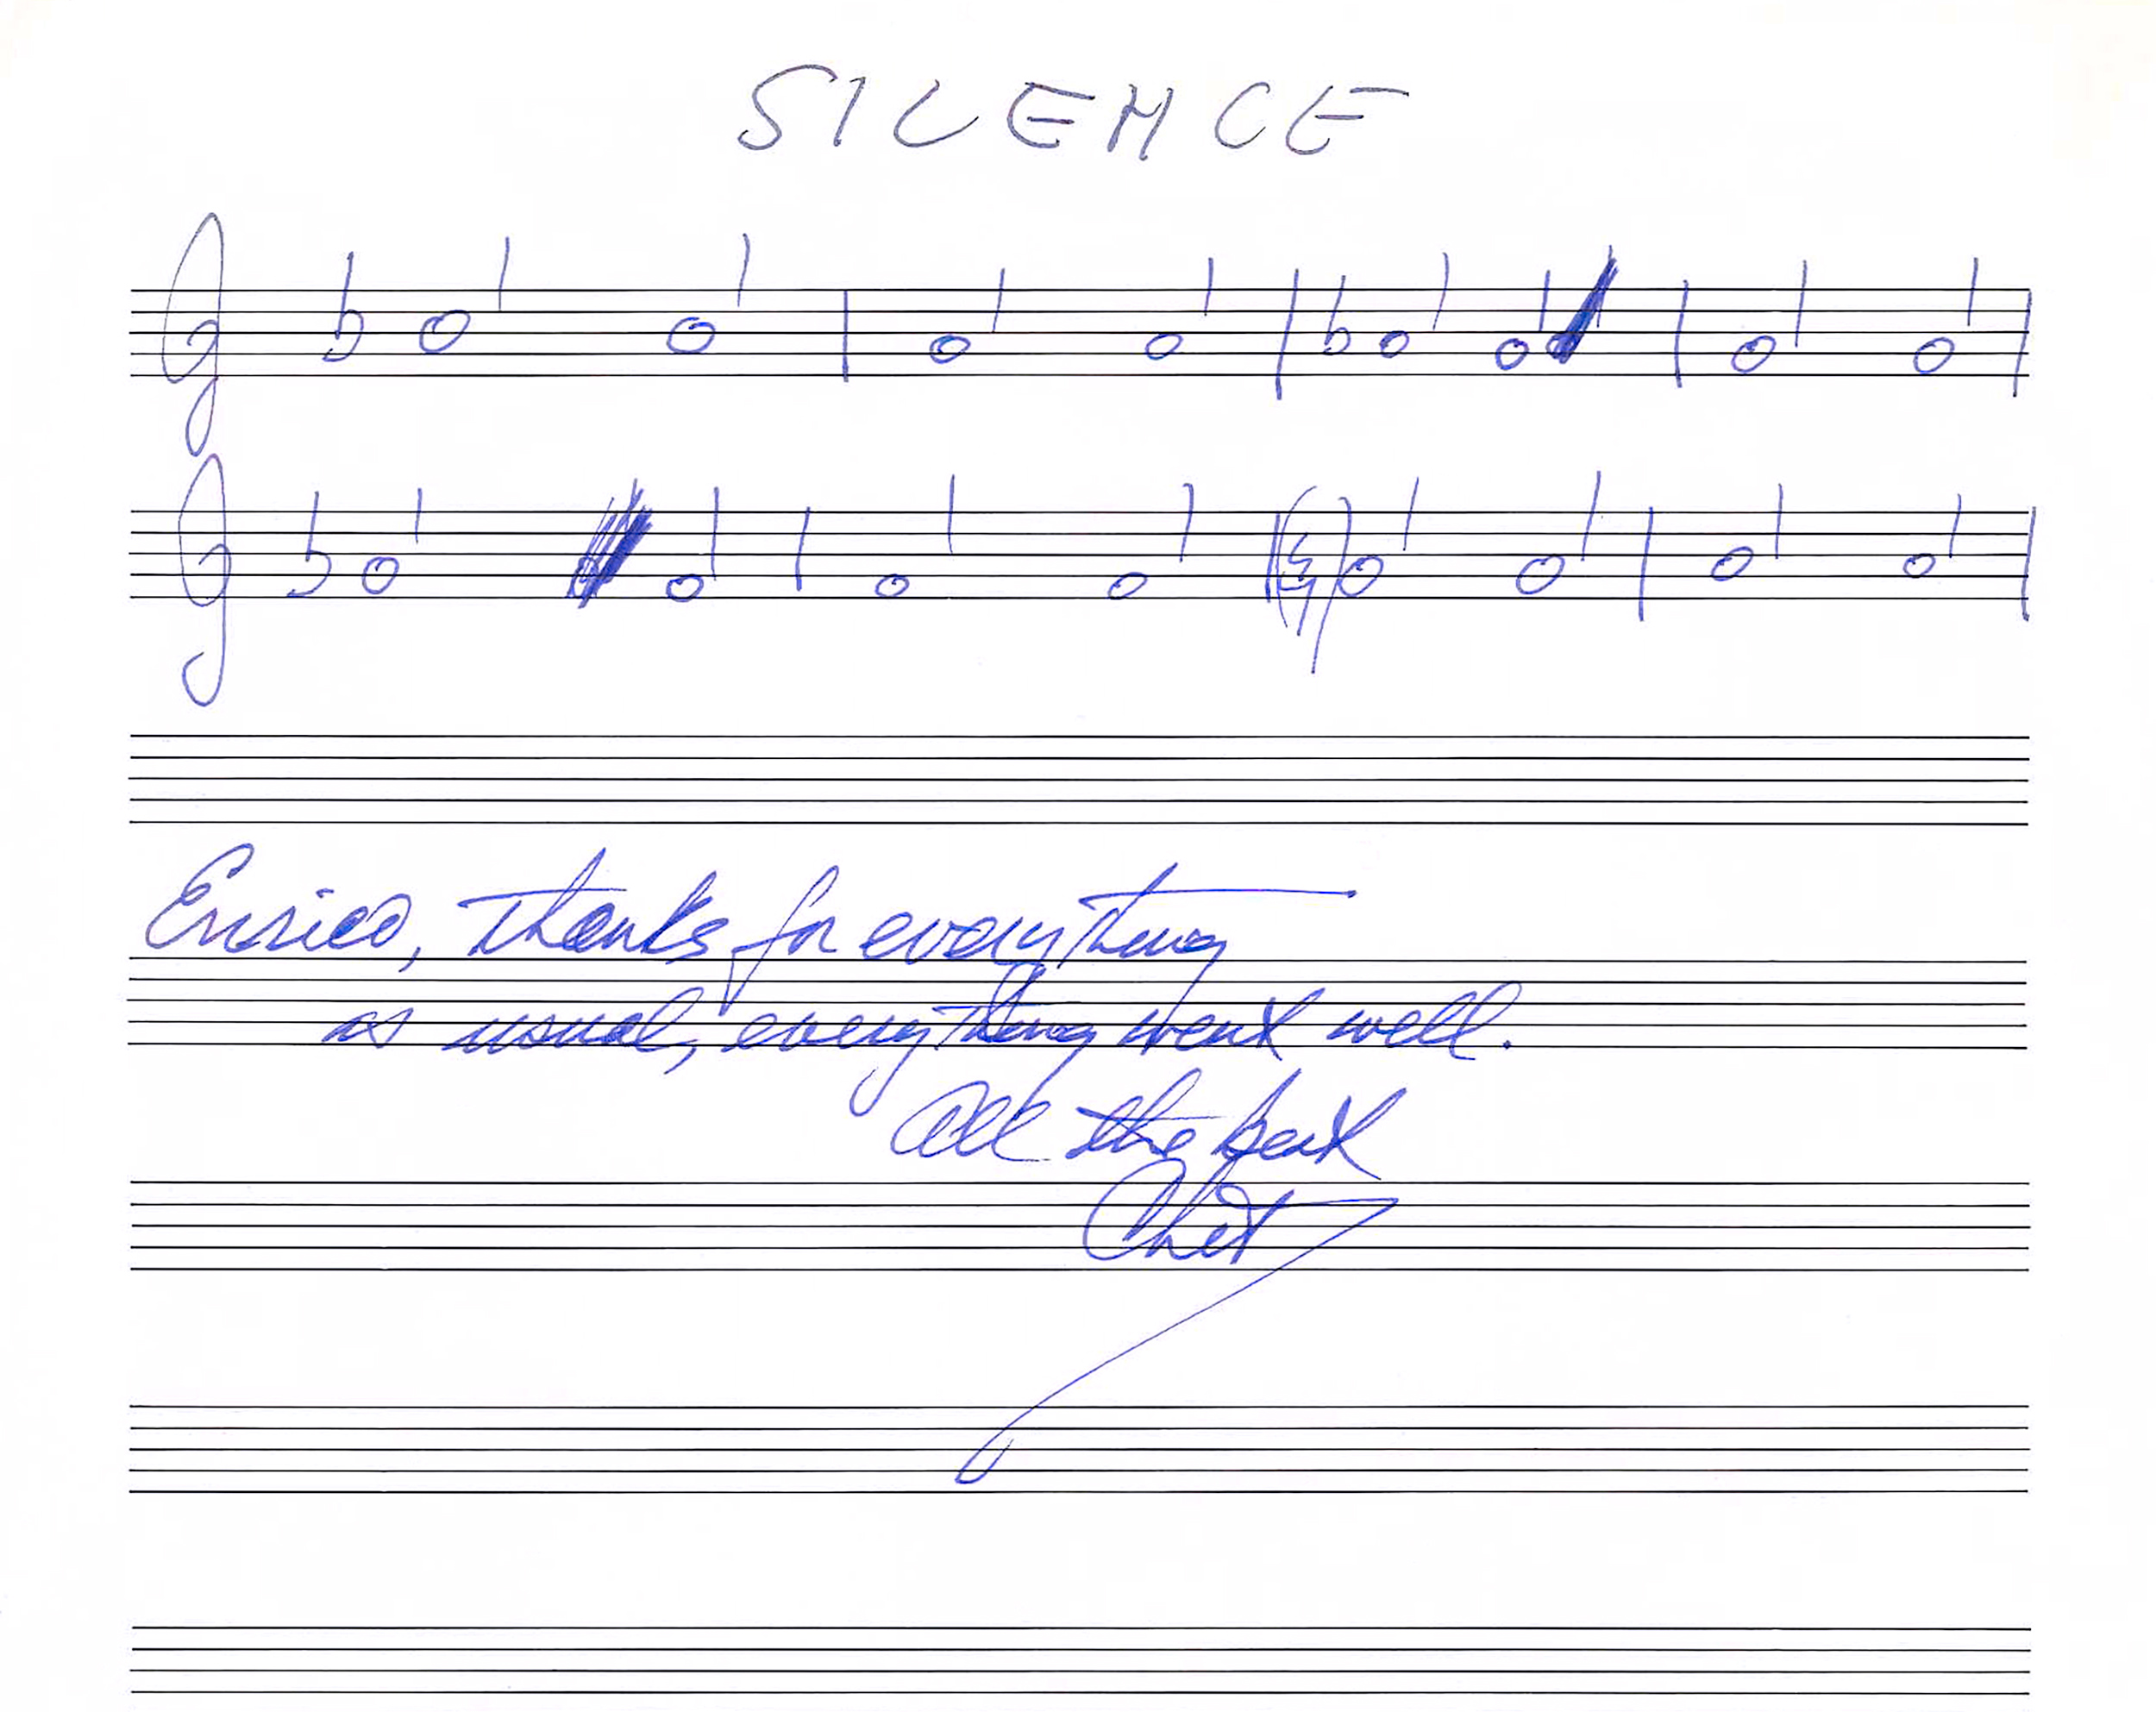 SILENCE
Enrico, Thanks for everything
as usual, everything went well.
All the best
Chet